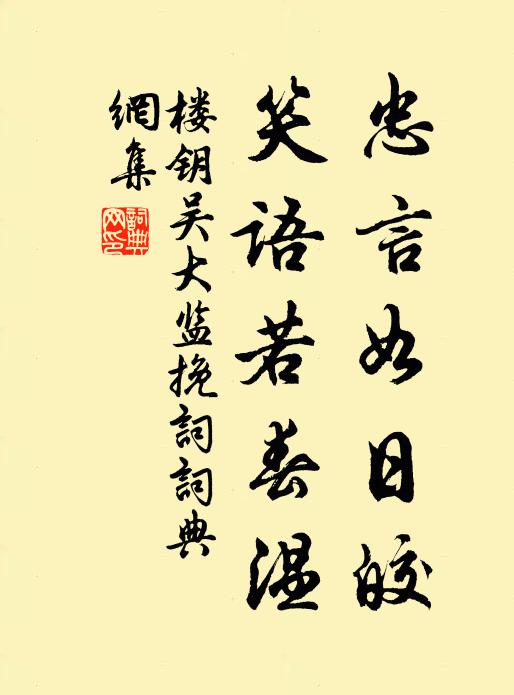 忠言如日皎
笑语若春温
楼钥吴大监挽詞詞典
網集
詞典
网印